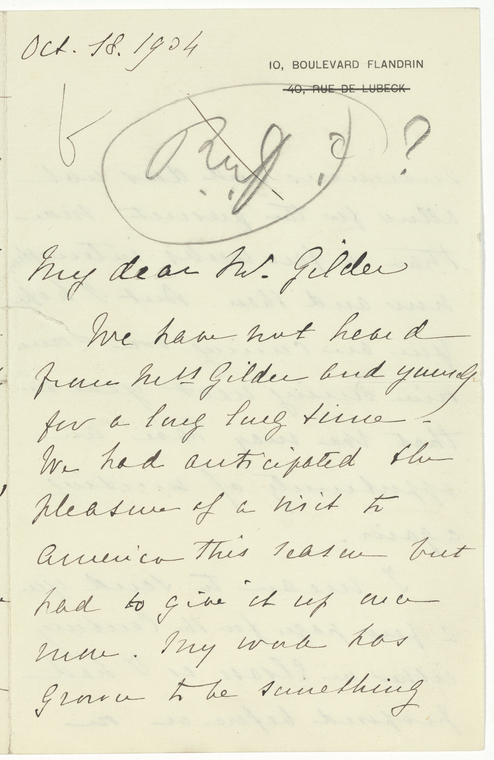 Oct. 18. 1904
10, BOULEVARD FLANDRIN
40, RUE DE LUBECK
?
My dear Mr. Gilder
We have not heard
from Mrs Gilder and yourself
for a long long time -
We had anticipated the
pleasure of a visit to
America this season but
had to give it up once
more. My work has
grown to be something